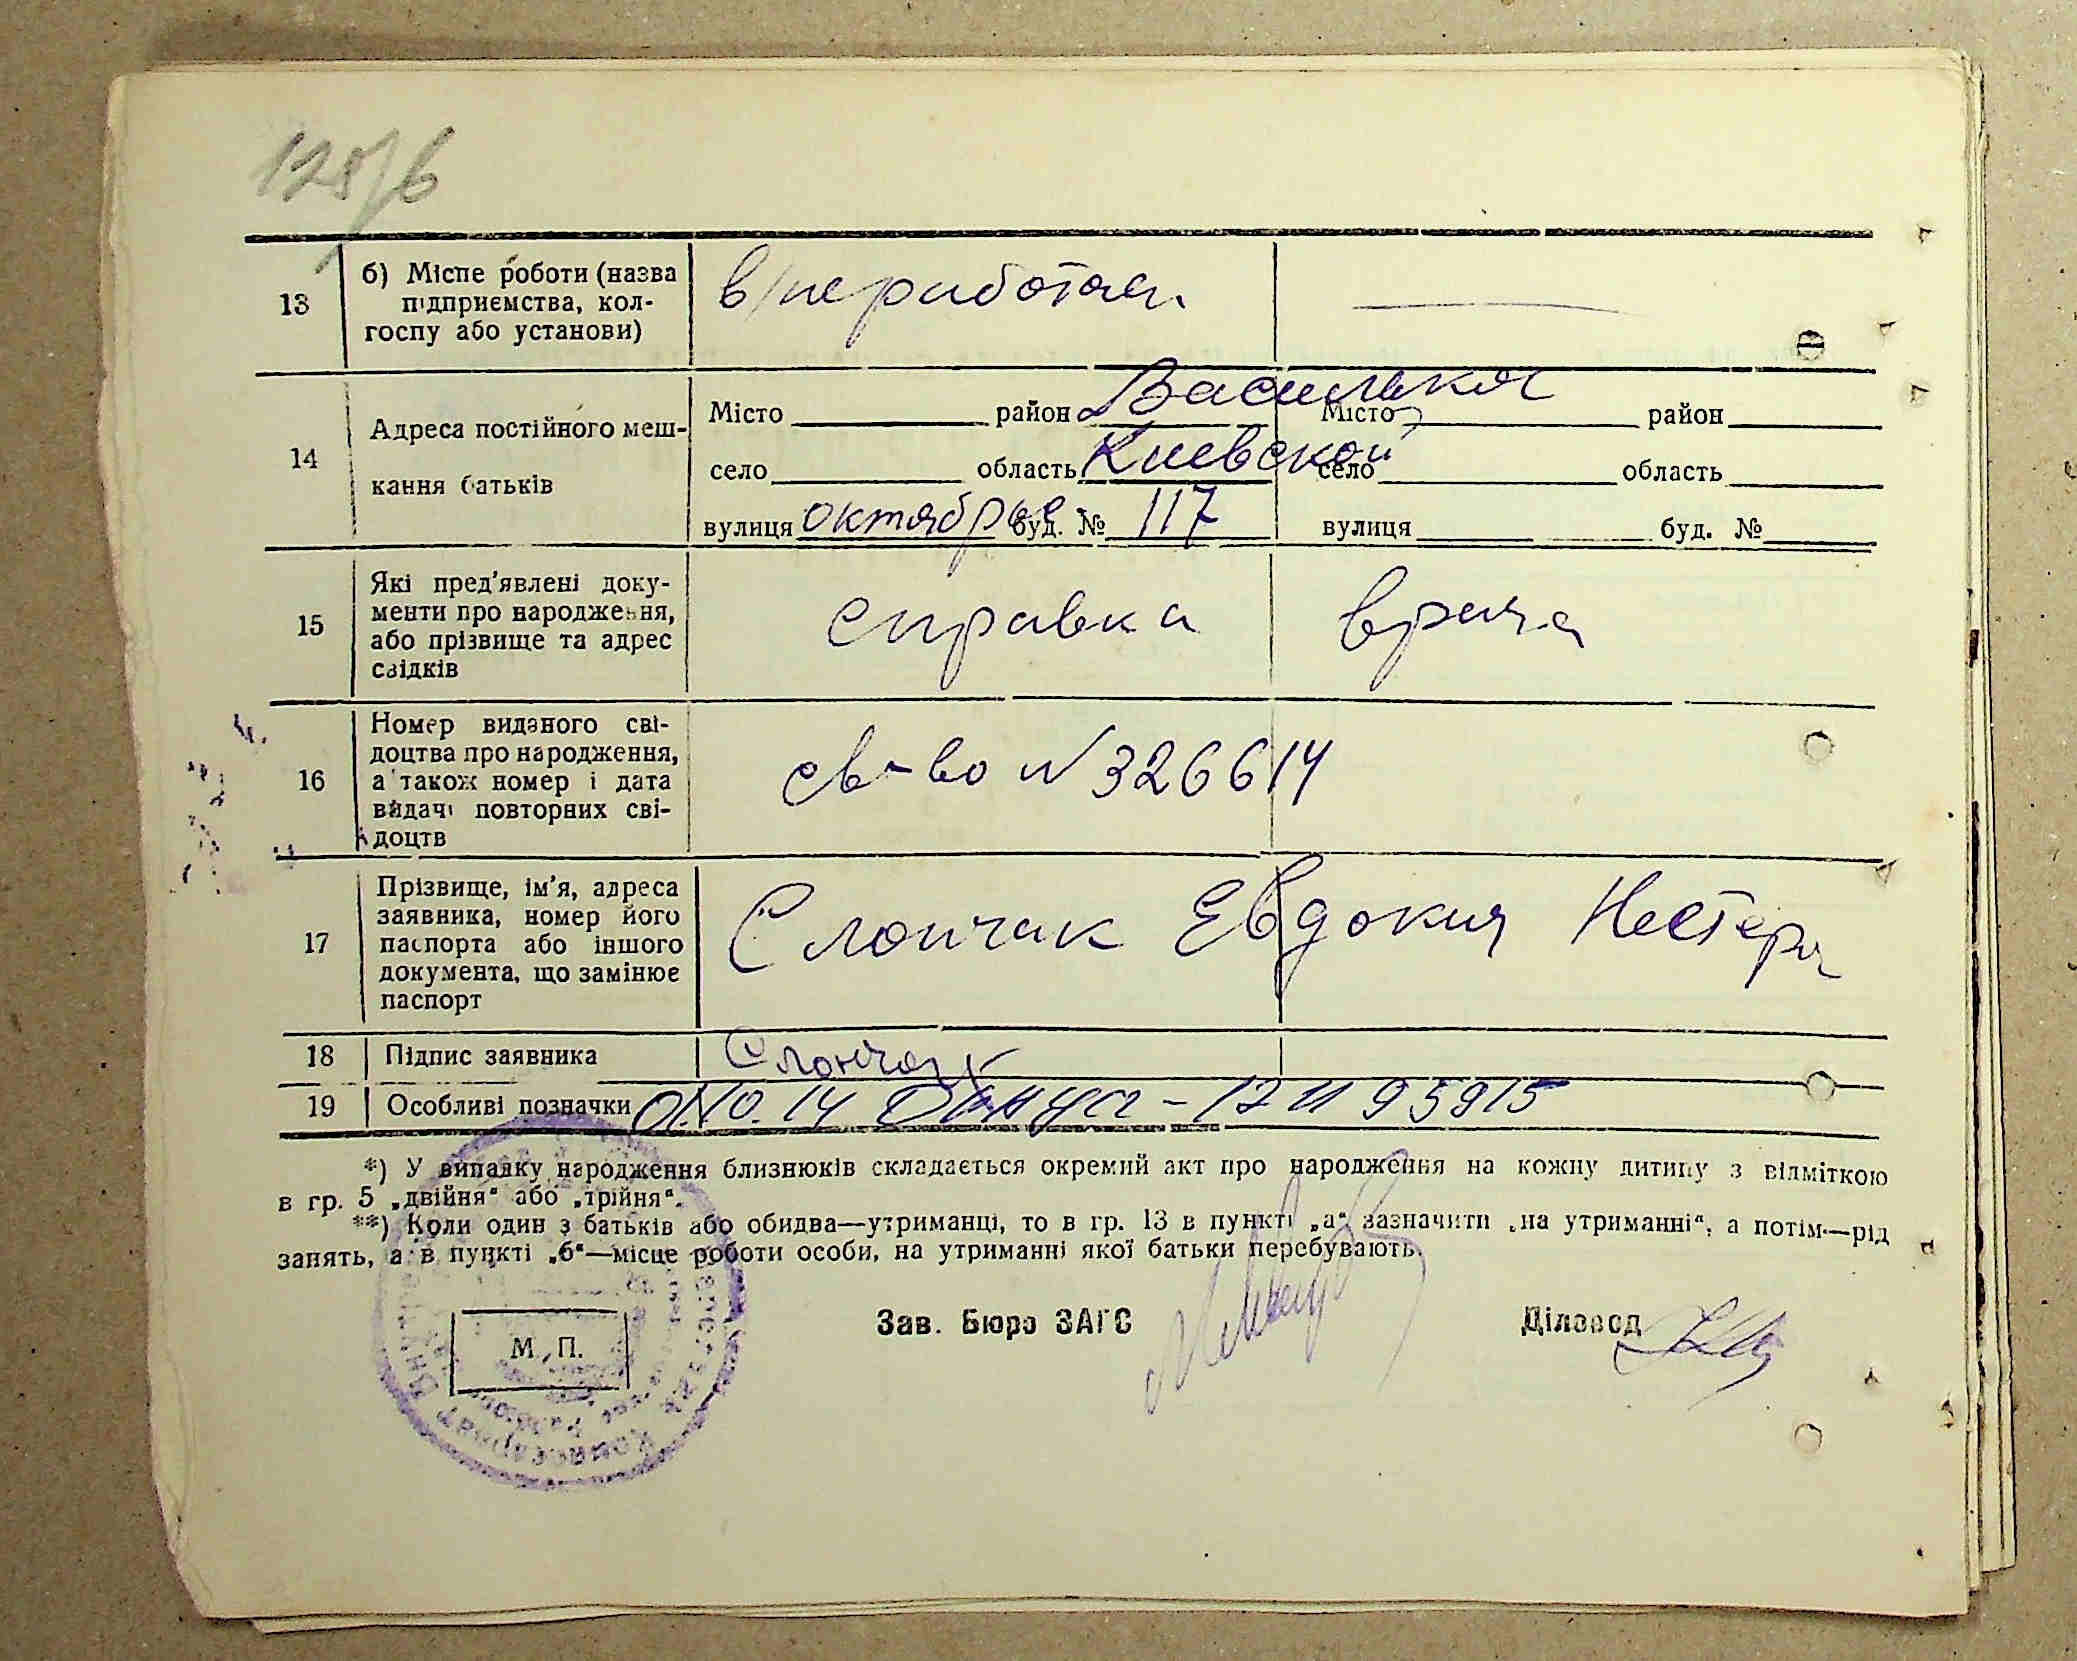 125/6
13 б) Місце роботи (назва підприємства, колгоспу або установи)
14 Адреса постійного мешкання батьків
Місто район Васильков Місто район
село область Киевской село область
вулиця октябрьс буд. № 117 вулиця буд. №
15 Які пред'явлені документи про народження, або прізвище та адрес свідків справка врача
16 Номер виданого свідоцтва про народження, а також номер і дата видачі повторних свідоцтв св-во N 326614
17 Прізвище, ім'я, адреса заявника, номер його паспорта або іншого документа, що замінює паспорт Слончак Евдокия Нестеро
18 Підпис заявника Слончак
19 Особливі позначки
*) У випадку народження близнюків складається окремий акт про народження на кожну дитину з відміткою
в гр. 5 „двійня“ або „трійня“.
**) Коли один з батьків або обидва—утриманці, то в гр. 13 в пункті „а“ зазначити „на утриманні“, а потім—рід
занять, а в пункті „б“—місце роботи особи, на утриманні якої батьки перебувають.
Зав. Бюро ЗАГС Діловод
М. П.